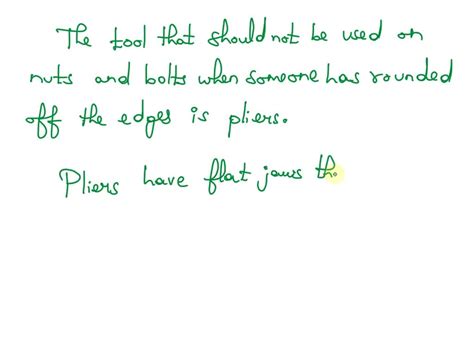 The tool that should not be used on
nuts and bolts when someone has rounded
off the edges is pliers.
Pliers have flat jaws th